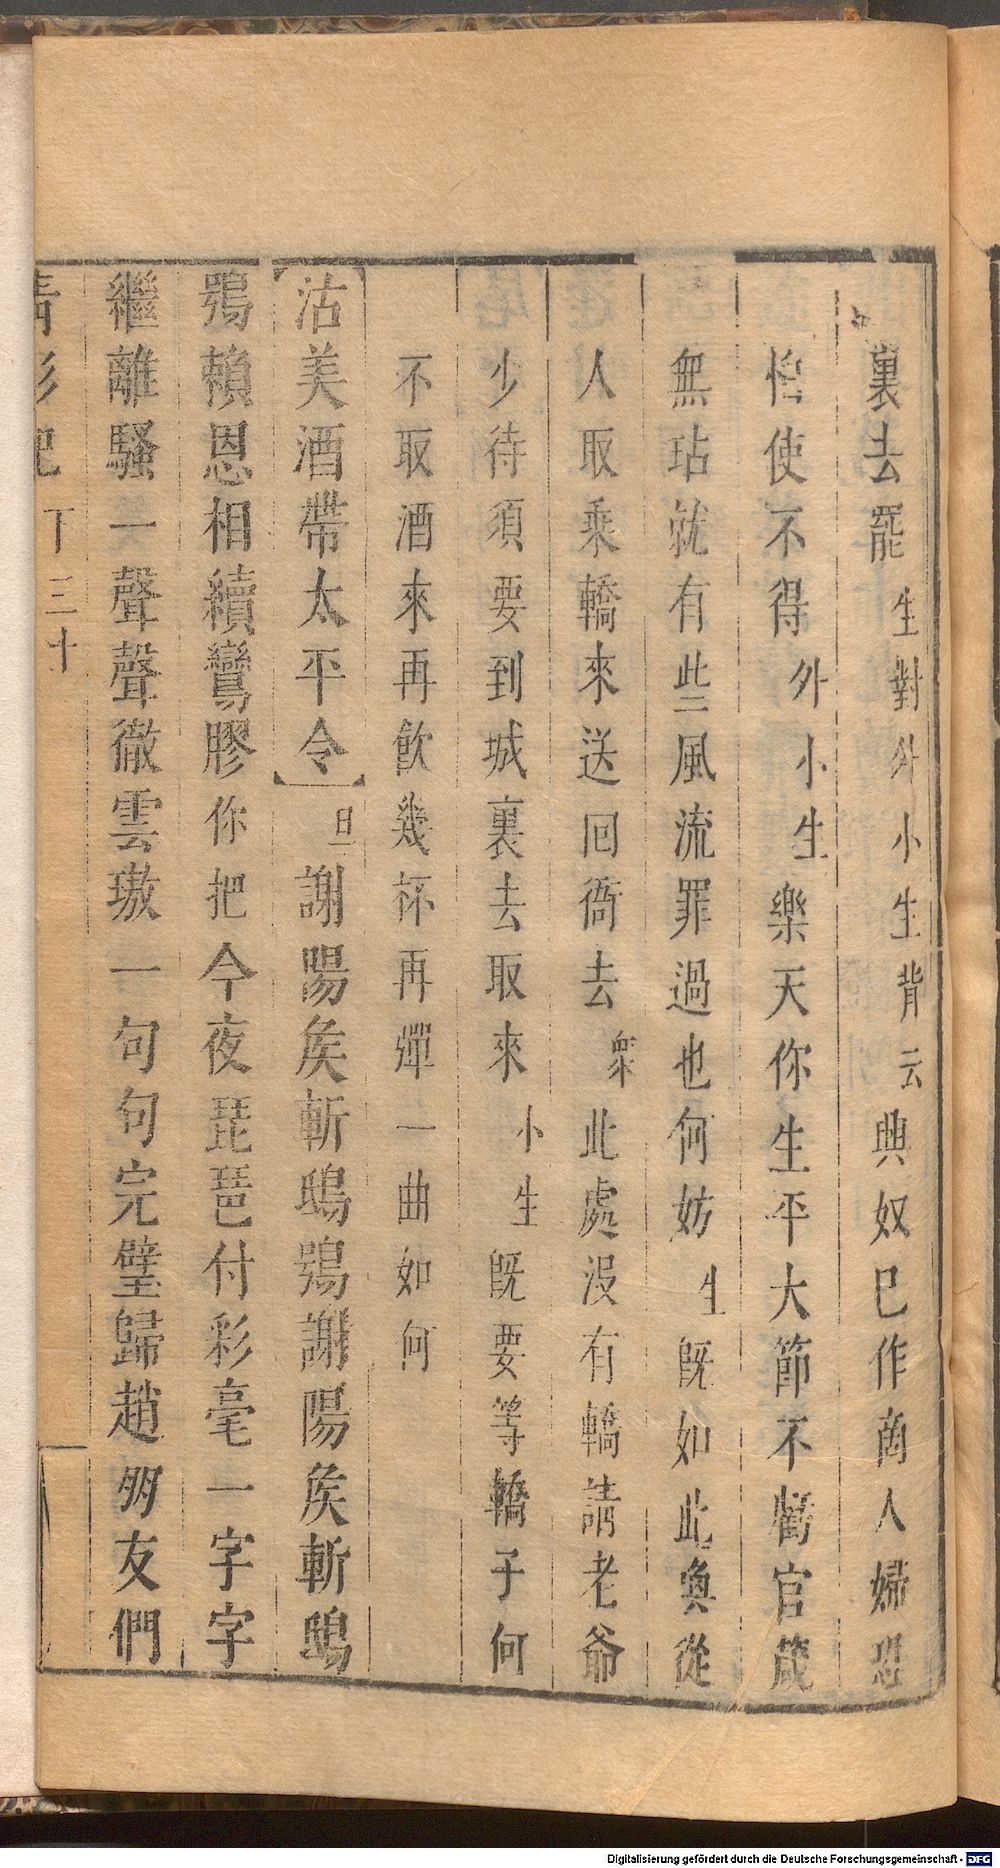 裏去罷生對外小生背云興奴已作商人婦恐
怕使不得外小生樂天你生平大節不虧官箴
無玷就有些風流罪過也何妨生既如此奐從
人取乘轎來送回衙去衆此處沒有轎請老爺
少待須要到城裏去取來小生既要等轎子何
不取酒來再飲幾杯再彈一曲如何
沽美酒帶太平令旦謝陽矦斬鴟鴞謝陽矦斬鴟
鴞賴恩相續鸞膠你把今夜琵琶付彩毫一字字
繼離騷一聲聲徹雲璈一句句完璧歸趙朋友們
青衫記
下
三十
Digitalisierung gefördert durch die Deutsche Forschungsgemeinschaft - DFG